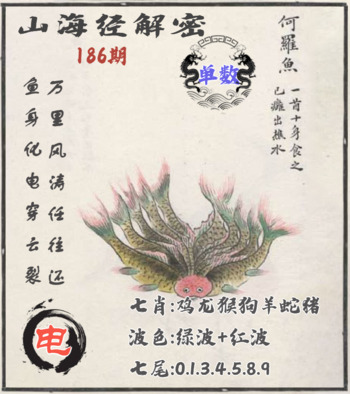 山海经解密
186期
单数
何羅魚
一首十身食之
已癰出熊水
万里风涛任往还
鱼身化电穿云裂
电
七肖:鸡龙猴狗羊蛇猪
波色:绿波+红波
七尾:0.1.3.4.5.8.9